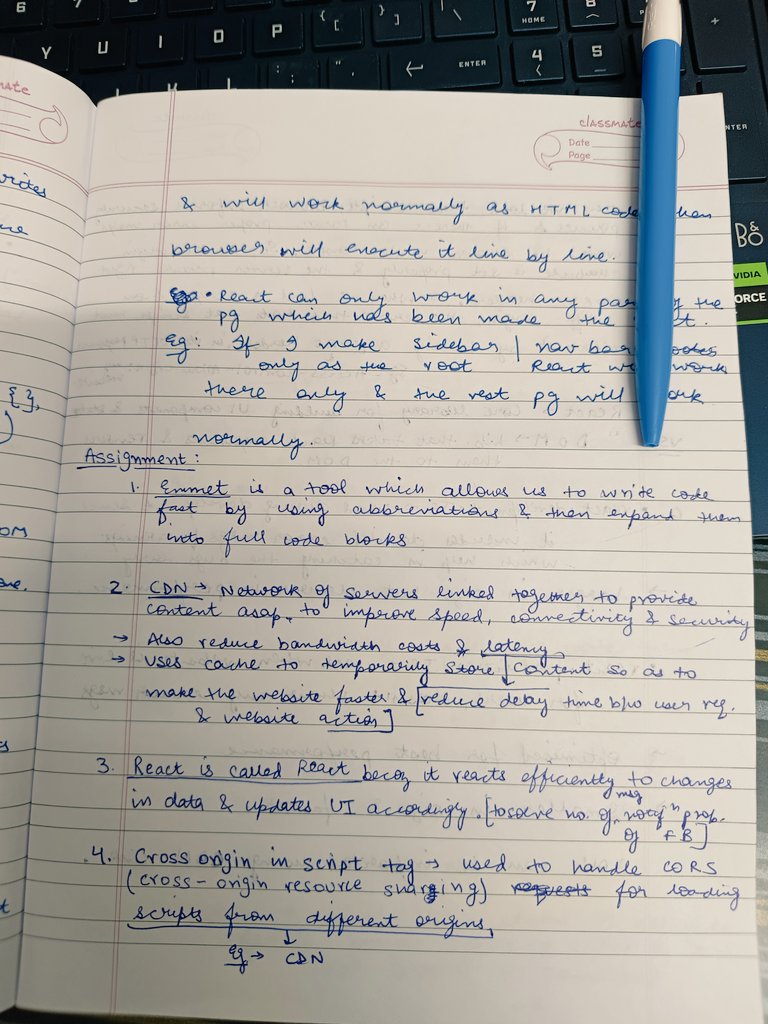 7
HOME
8
6
Y
U
I
O
P
{
[
}
]
|
\
4
5
+
ENTER
ENTER
classmate
Date
Page
B&O
VIDIA
ORCE
& will work normally as HTML code
browser will execute it line by line.
• React can only work in any the
pg which has been made the
Eg: If I make sidebar | nav bar
only as the root React work
there only & the rest pg will
normally.
Assignment:
1. Emmet is a tool which allows us to write code
fast by using abbreviations & then expand them
into full code blocks
2. CDN → Network of servers linked together to provide
content asap. to improve speed, connectivity & security
→ Also reduce bandwidth costs & latency
→ uses cache to temporarily store content so as to
make the website faster & [reduce delay time b/w user req.
& website action]
3. React is called React becoz it reacts efficiently to changes
in data & updates UI accordingly. [to solve no. of msg notifⁿ prob.
of FB]
4. Cross origin in script tag → used to handle CORS
(cross-origin resource sharing) requests for loading
scripts from different origins,
↓
Eg → CDN